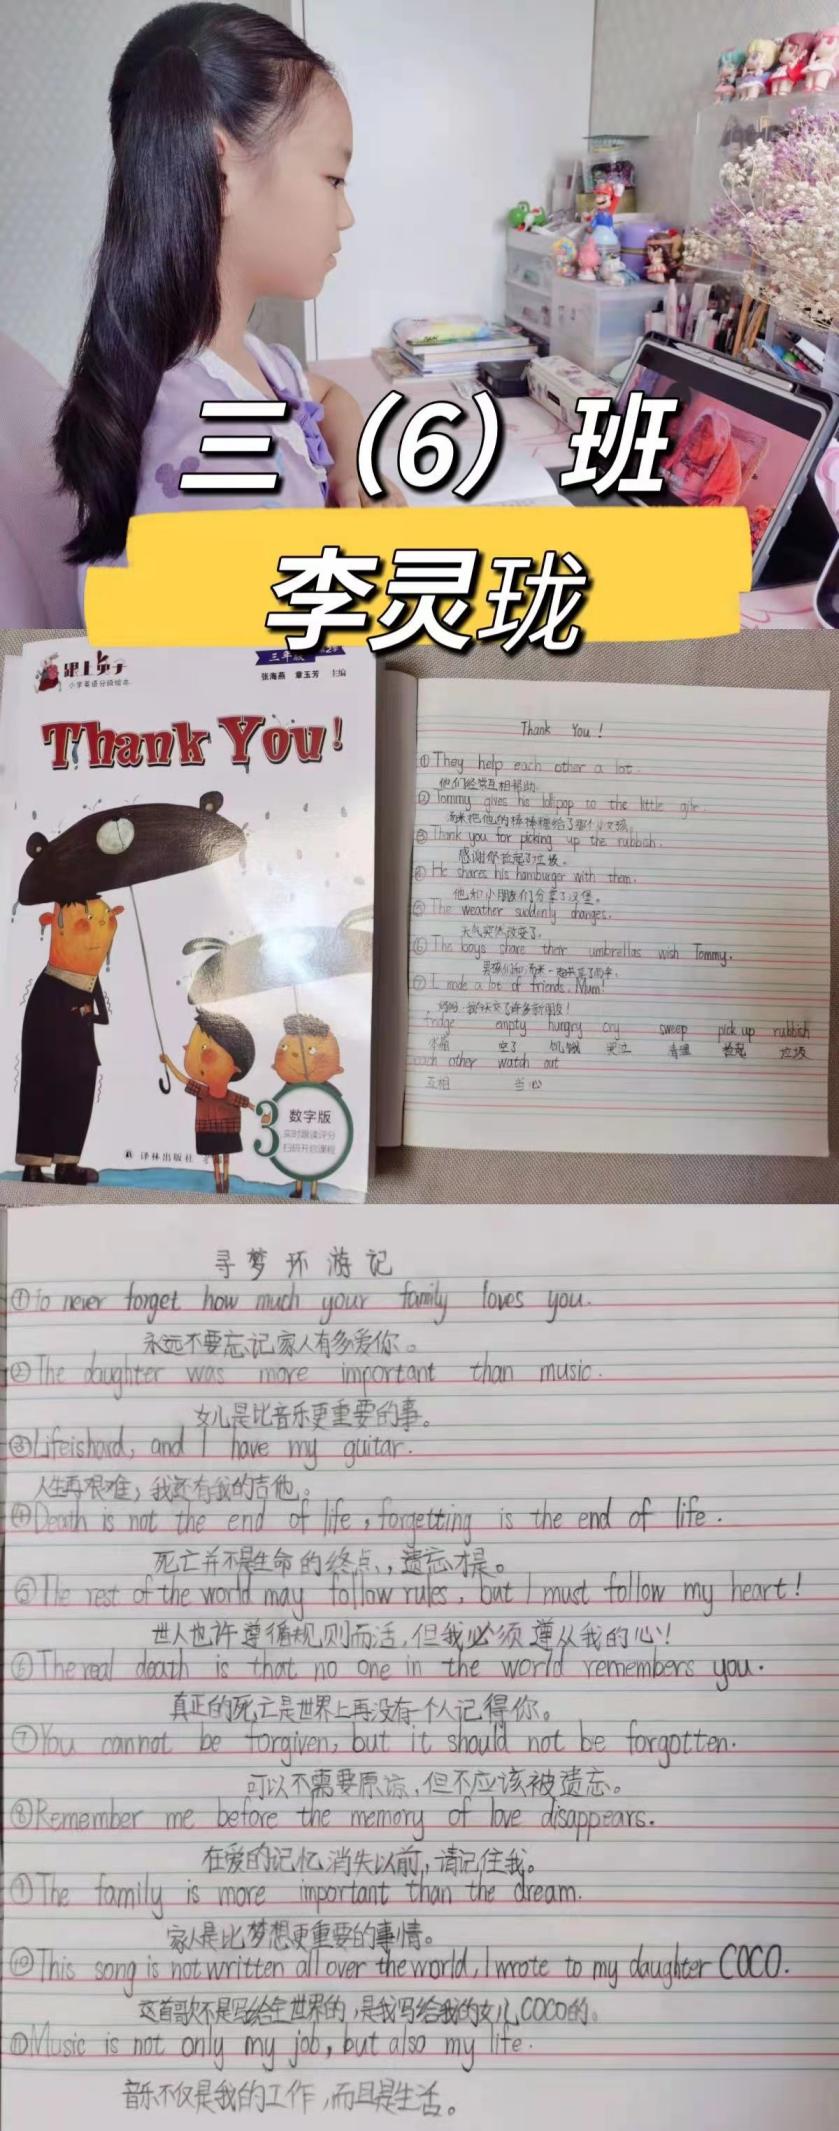 三（6）班
李灵珑
跟上兔子
小学英语分级绘本
三年级
张海燕 章玉芳 主编
Thank You!
3
数字版
实时跟读评分
扫码开启课程
译林出版社
Thank You!
①They help each other a lot.
他们经常互相帮助.
②Tommy gives his lollipop to the little girle.
汤米把他的棒棒糖给了那个小女孩.
③Thank you for picking up the rubbish.
感谢你捡起了垃圾。
④He shares his hamburger with them.
他和小朋友们分享了汉堡。
⑤The weather suddenly changes.
天气突然改变了.
⑥The boys share their umbrellas wish Tommy.
男孩们和汤米一起共享了雨伞.
⑦I made a lot of friends, Mum!
妈妈,我今天交了许多新朋友!
fridge empty hungry cry sweep pick up rubbish
冰箱 空了 饥饿 哭泣 清理 捡起 垃圾
each other watch out
互相 当心
寻梦环游记
①To never forget how much your family loves you.
永远不要忘记家人有多爱你。
②The daughter was more important than music.
女儿是比音乐更重要的事。
③Lifeishard, and I have my guitar.
人生再艰难，我还有我的吉他。
④Death is not the end of life, forgetting is the end of life.
死亡并不是生命的终点，遗忘才是。
⑤The rest of the world may follow rules, but I must follow my heart!
世人也许遵循规则而活,但我必须遵从我的心!
⑥The real death is that no one in the world remembers you.
真正的死亡是世界上再没有一个人记得你。
⑦You cannot be forgiven, but it should not be forgotten.
可以不需要原谅,但不应该被遗忘。
⑧Remember me before the memory of love disappears.
在爱的记忆消失以前,请记住我。
⑨The family is more important than the dream.
家人是比梦想更重要的事情。
⑩This song is not written all over the world, I wrote to my daughter COCO.
这首歌不是写给全世界的,是我写给我的女儿COCO的。
⑪Music is not only my job, but also my life.
音乐不仅是我的工作,而且是生活。